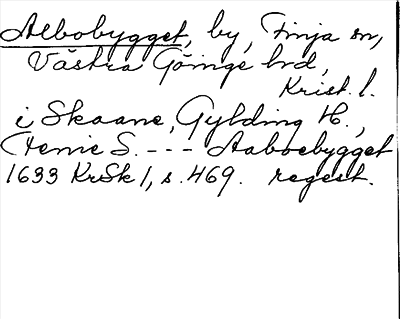 Aebobygget, by, Finja sn,
Västra Göinge hrd,
Krist. l.
i Skaane, Gylding H.,
S. --- Aaboebygget
1633 KrSk 1, s. 469. regest.